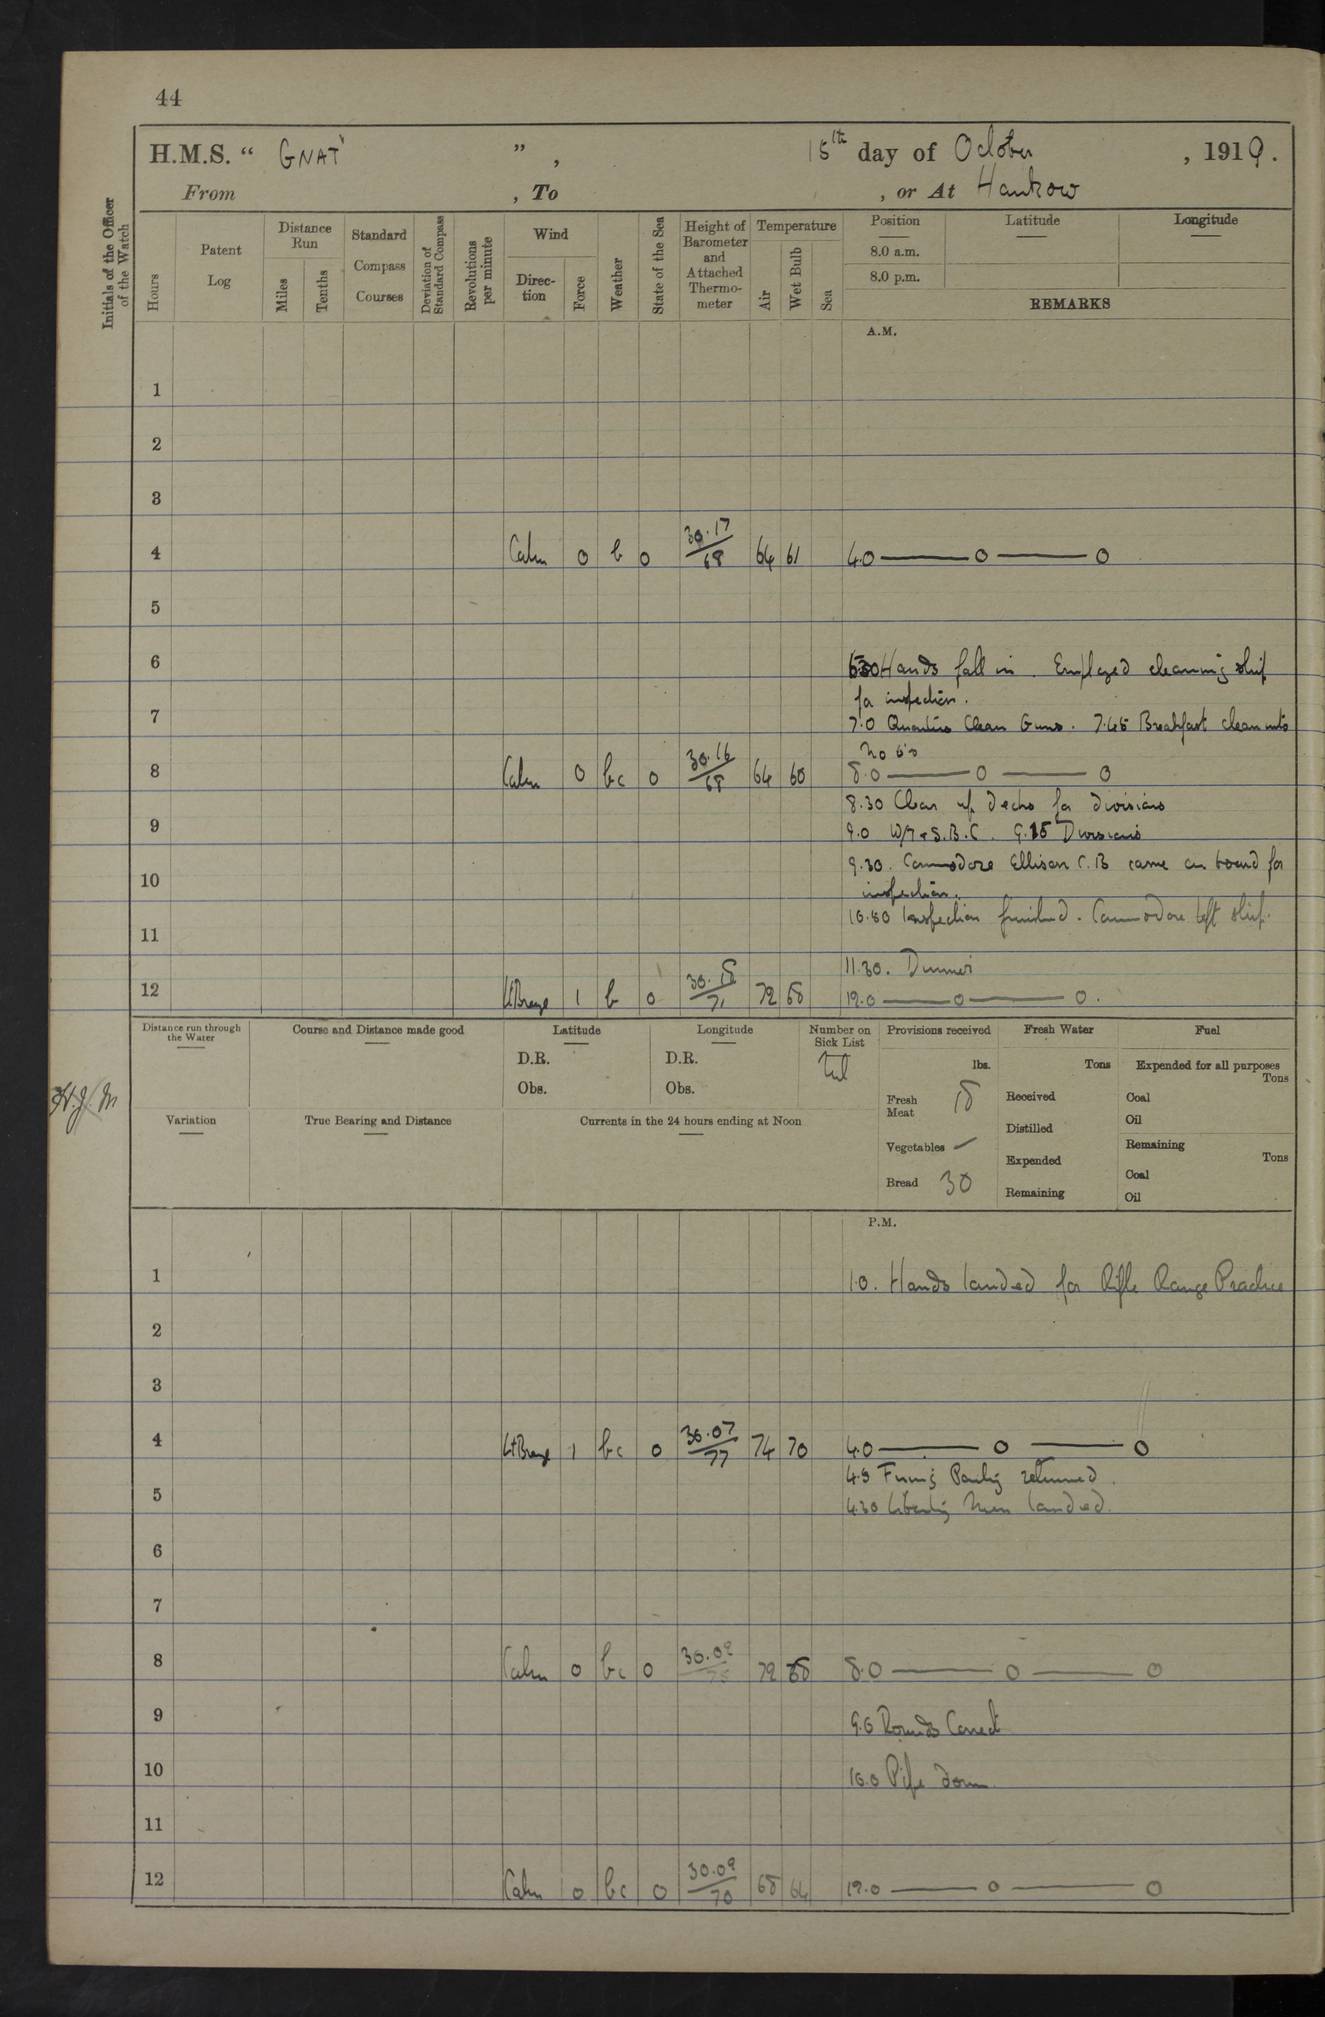 44
H.M.S. “ GNAT ” , 15th day of October , 1919.
From , To , or At Hankow
Initials of the Officer of the Watch
Hours
Patent Log
Distance Run
Miles
Tenths
Standard Compass Courses
Deviation of Standard Compass
Revolutions per minute
Wind
Direc-tion
Force
Weather
State of the Sea
Height of Barometer and Attached Thermo-meter
Temperature
Air
Wet Bulb
Sea
Position Latitude Longitude
8.0 a.m.
8.0 p.m.
REMARKS
A.M.
1
2
3
4 Calm 0 b 0 30.17/68 64 61 4.0 — 0 — 0
5
6 Hands fall in. Employed cleaning ship
for inspection.
7 7.0 Quarters Clean Guns. 7.45 Breakfast clean into
No 6's
8 Calm 0 bc 0 30.16/68 64 60 8.0 — 0 — 0
8.30 Clear up decks for divisions
9 9.0 W/T & S.B.C. 9.15 Divisions
9.30. Commodore Ellison C.B came on board for
10 inspection.
Inspection finished. Commodore left ship.
11
11.30. Dinner
12 Lt Breeze 1 b 0 71 72 68 12.0 — 0 — 0.
Distance run through the Water
Course and Distance made good
Latitude
D.R.
Obs.
Longitude
D.R.
Obs.
Number on Sick List
Provisions received
lbs.
Fresh Meat 18
Vegetables —
Bread 30
Fresh Water
Tons
Received
Distilled
Expended
Remaining
Fuel
Expended for all purposes
Tons
Coal
Oil
Remaining
Tons
Coal
Oil
Variation
True Bearing and Distance
Currents in the 24 hours ending at Noon
P.M.
1 1.0. Hands landed for Rifle Range Practice
2
3
4 Lt Breeze 1 bc 0 30.07/77 74 70 4.0 — 0 — 0
Firing Party returned.
5 4.30 Liberty Men landed.
6
7
8 Calm 0 bc 0 30.09 72 68 8.0 — 0 — 0
9 9.0 Rounds Correct
10 10.0 Pipe down
11
12 Calm 0 bc 0 30.09/70 68 64 12.0 — 0 — 0